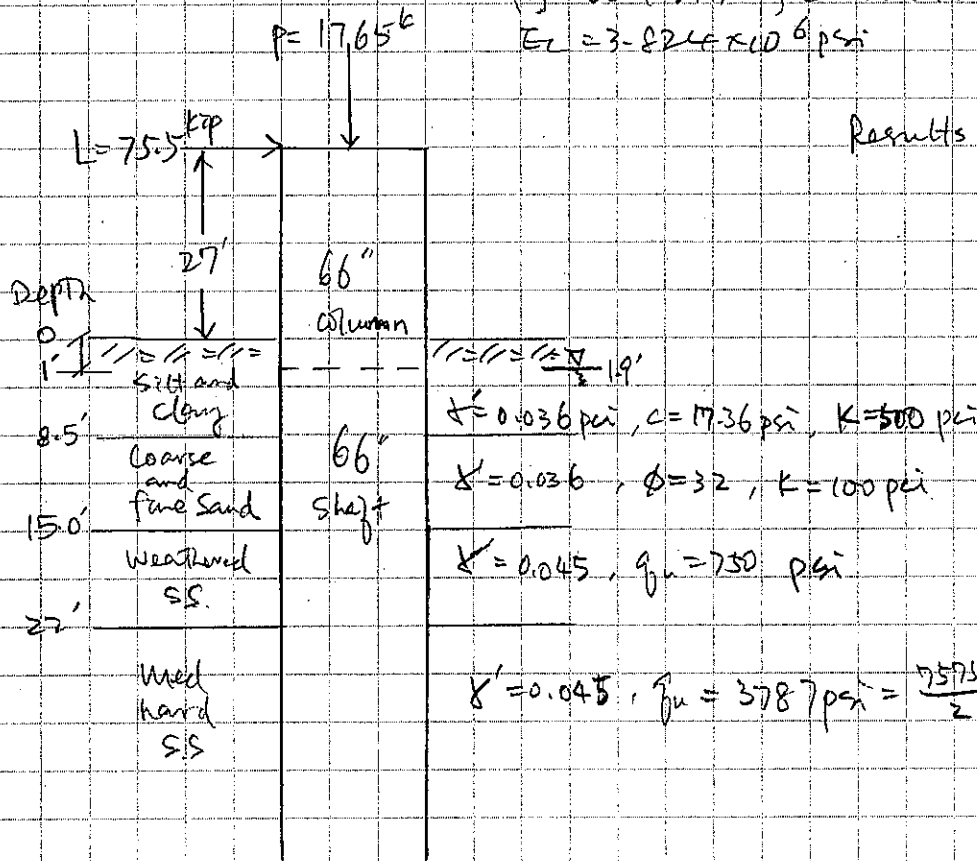 P= 1765ᵏ
Ec = 3.824 x10⁶ psi
L= 75.5 kip
Results
27'
66"
column
Depth
0
1'
1.9'
Silt and
clay
γ'= 0.036 pci, c= 17.36 psi, K=500 pci
8.5'
Coarse
and
fine Sand
66"
Shaft
γ'= 0.036, ϕ=32, K=100 pci
15.0'
Weathered
S.S.
γ'= 0.045, qu=750 psi
22'
Med
hard
S.S
γ'=0.045, qu= 3787psi = 7575/2